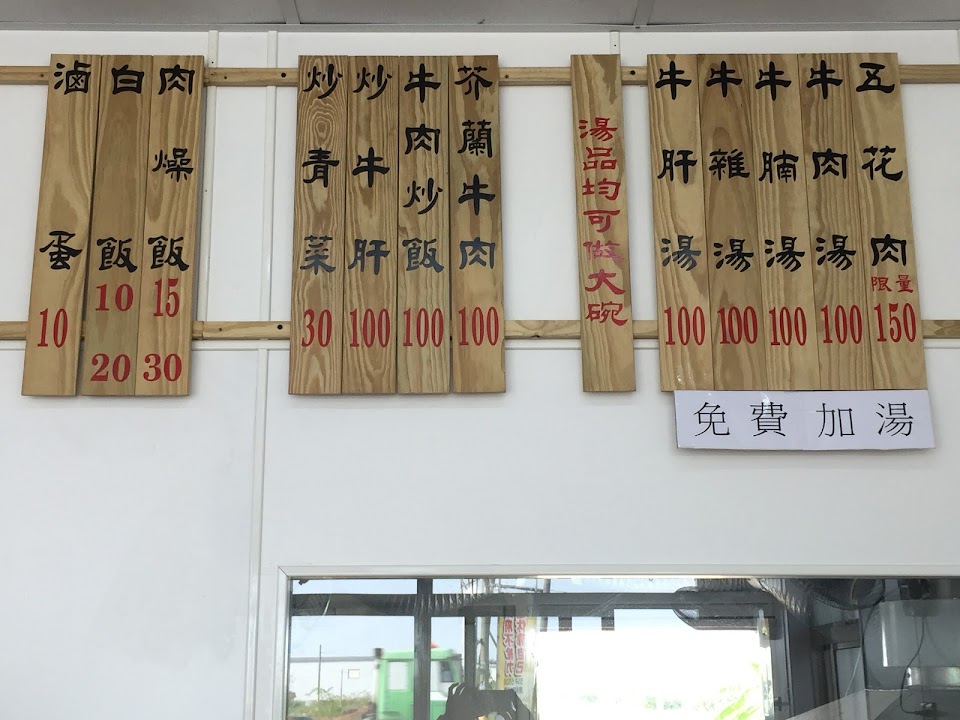 五花肉 限量 150
牛肉湯 100
牛腩湯 100
牛雜湯 100
牛肝湯 100
湯品均可做大碗
芥蘭牛肉 100
牛肉炒飯 100
炒牛肝 100
炒青菜 30
肉燥飯 15 30
白飯 10 20
滷蛋 10
免費加湯